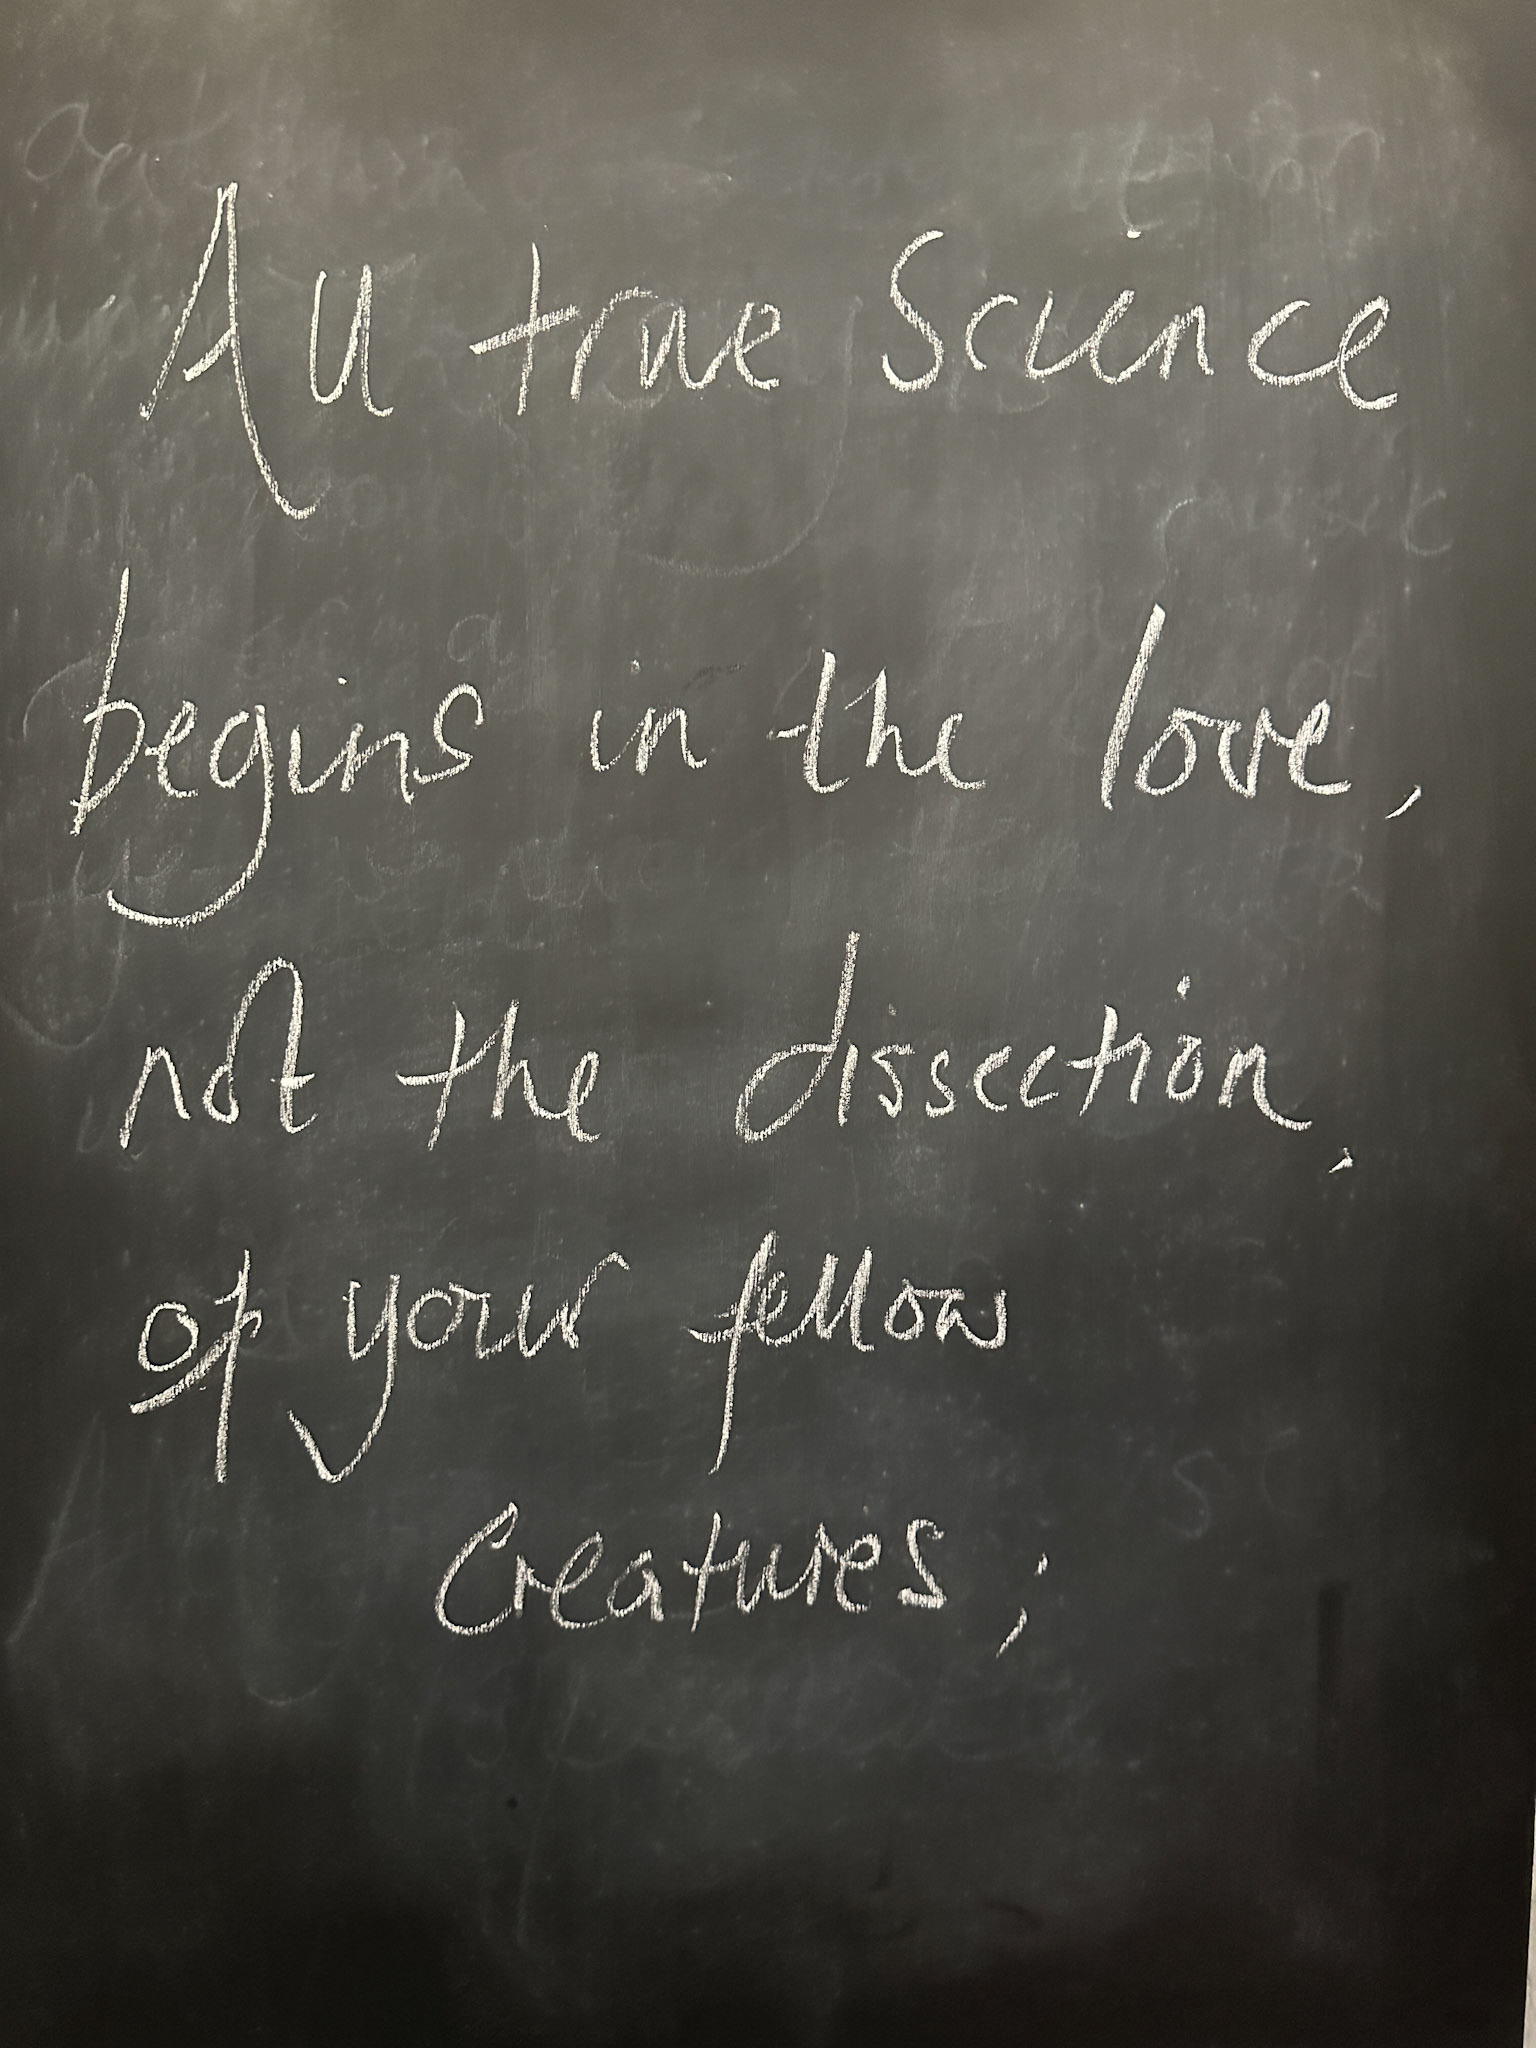 All true Science
begins in the love,
not the dissection,
of your fellow
Creatures;